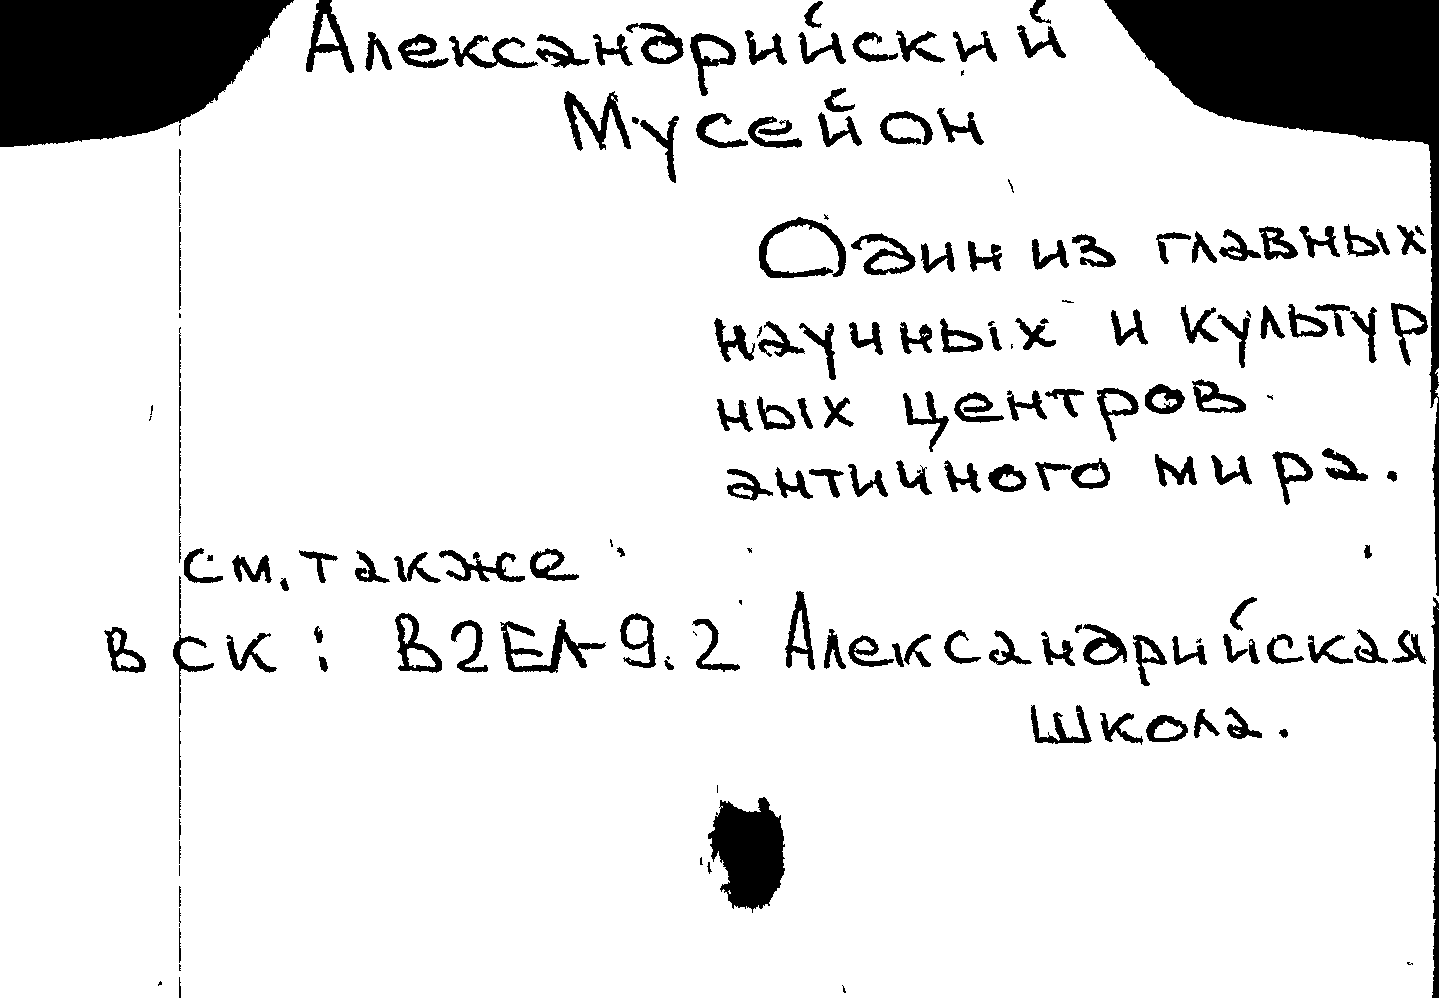 Александрийский
Мусейон
Один из главных
научных и культур
ных центров
античного мира.
см. также
в ск: В2ЕЛ-9.2 Александрийская
школа.